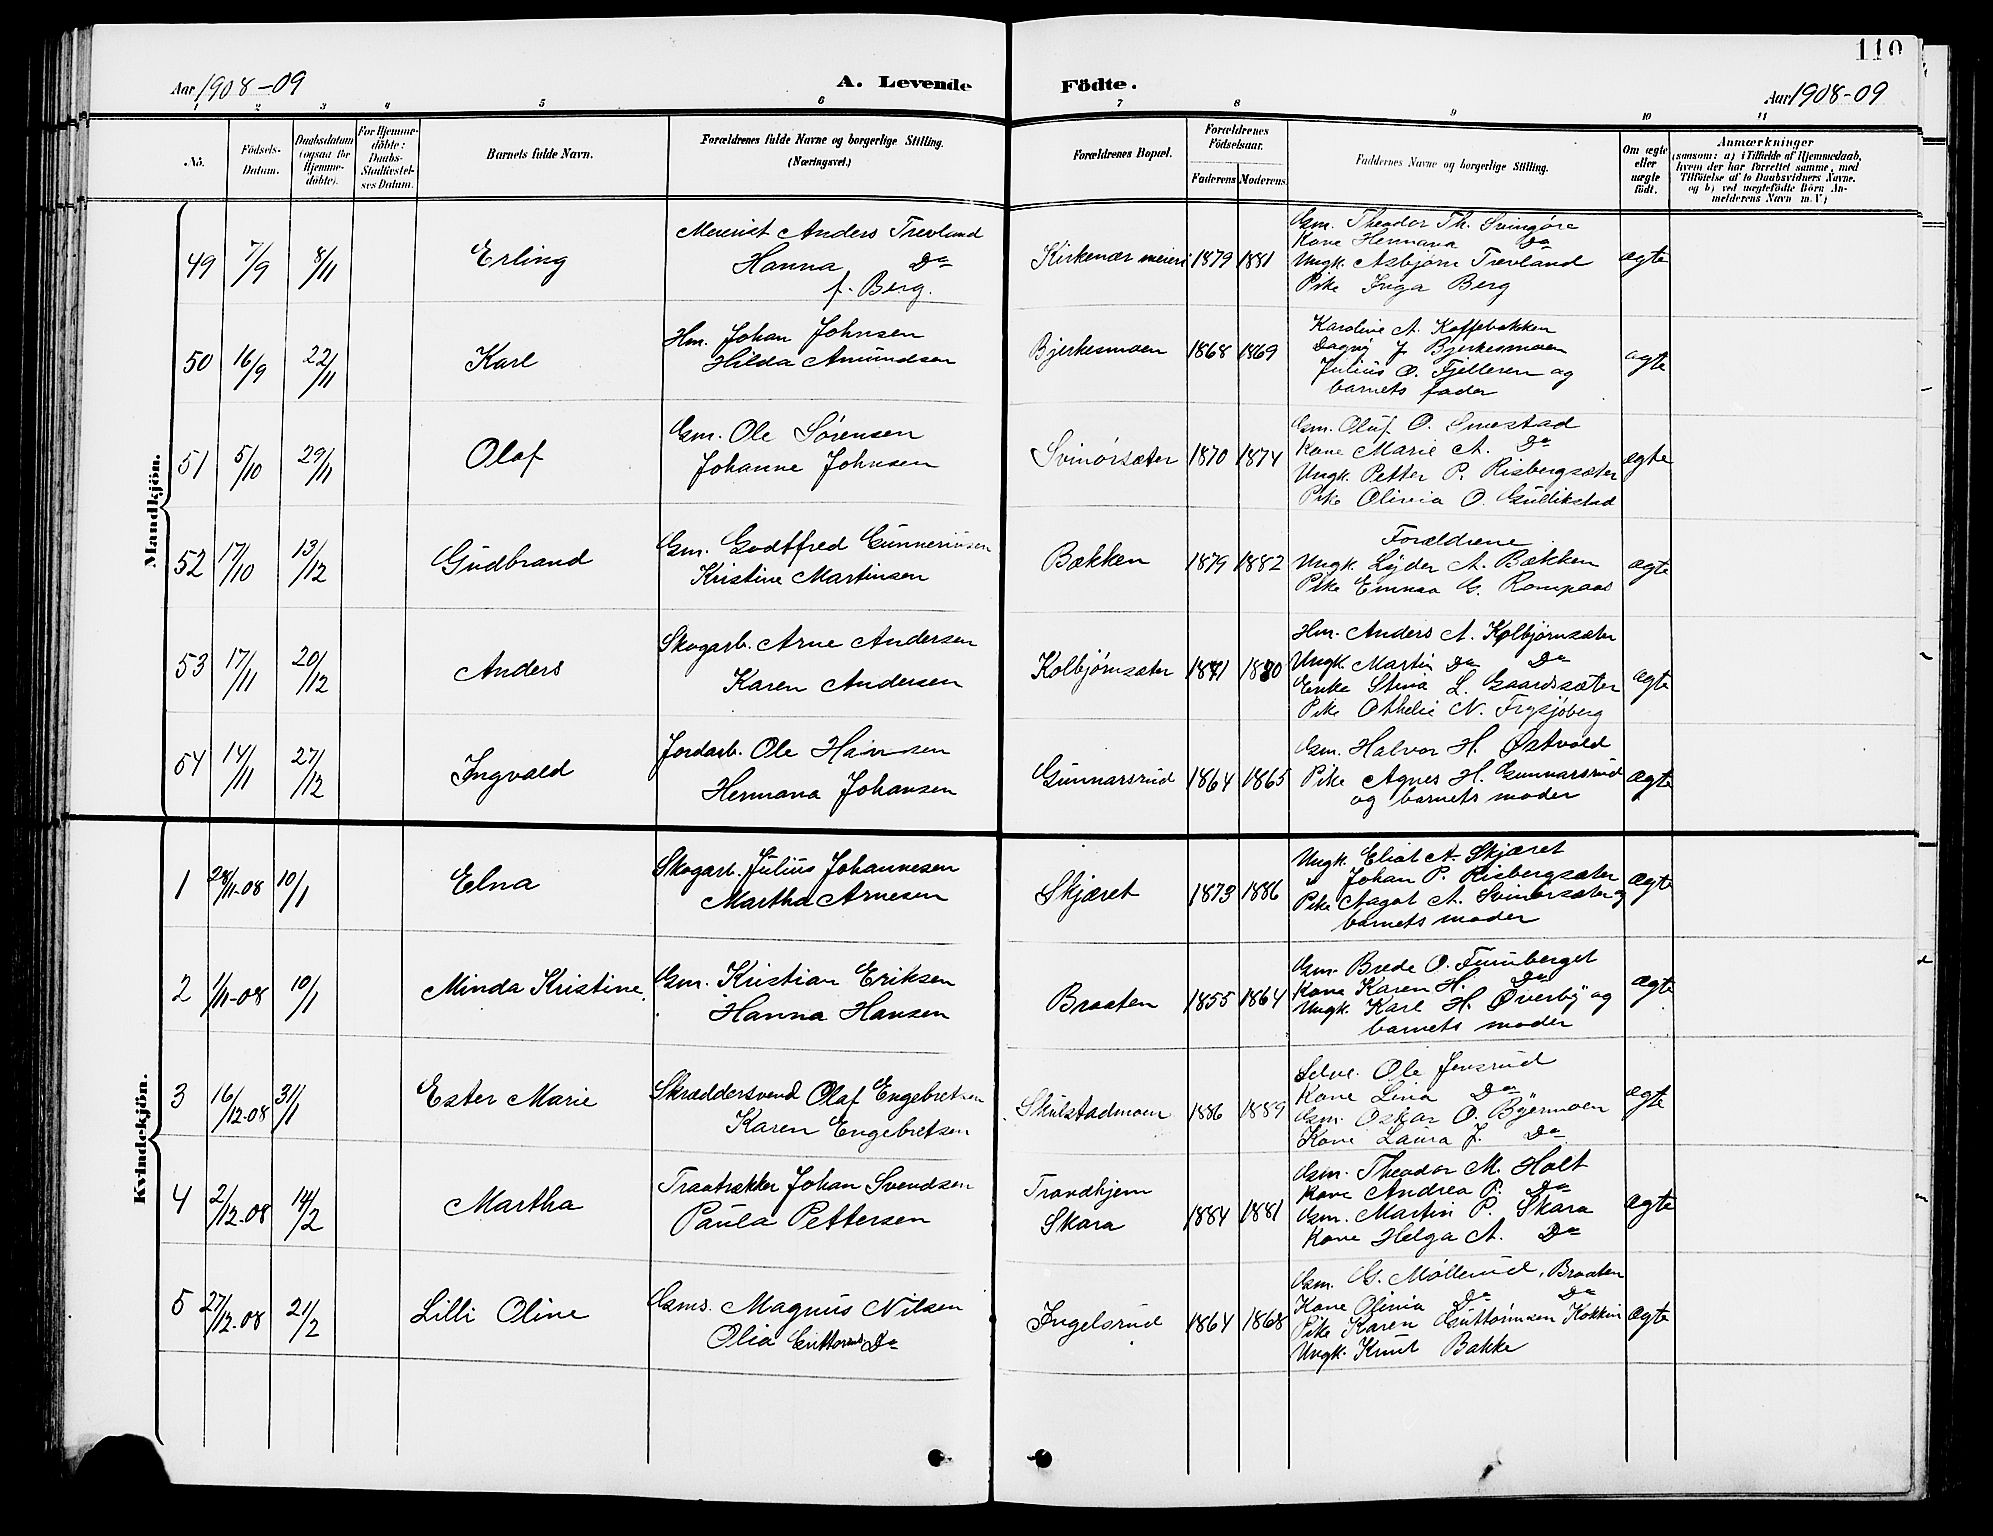 110
Aar 1908-09
A. Levende Födte.
Aar 1908-09
2 3 4 5 6 7 8 9 10 11
No.
Födsels-Datum.
Daabsdatum (ogsaa for Hjemme-döbte).
For Hjemme-döbte: Daabs-Stadfæstel-ses Datum.
Barnets fulde Navn.
Forældrenes fulde Navne og borgerlige Stilling. (Næringsvei.)
Forældrenes Bopæl.
Forældrenes Födselsaar.
Faderens Moderens
Faddernes Navne og borgerlige Stilling.
Om ægte eller uægte födt.
Anmærkninger
(saasom: a) i Tilfælde af Hjemmedaab, hvem der har forrettet samme, med Tilföielse af to Daabsvidners Navne. og b) ved uægtefödte Börn An-melderens Navn m. V.)
Mandkjön.
49 7/9 8/11 Erling
Meierist Anders Trevland
Hanna Do
f. Berg.
Kirkenær meieri 1879 1881
Gm. Theodor Th. Svingøre
Kone Hermana Do
Ungk. Asbjørn Trevland
Pike Inga Berg
ægte
50 16/9 22/11 Karl
Hm. Johan Johnsen
Hilda Amundsen
Bjerkesmoen 1868 1869
Karoline A. Kaffebakken
Dagny J. Bjerkesmoen
Julius O. Fjelleren og
barnets fader
ægte
51 5/10 29/11 Olaf
Gm. Ole Sørensen
Johanne Johnsen
Svinørsæter 1870 1874
Gm. Oluf O. Smestad
Kone Marie A. Do
Ungk. Petter P. Risbergsæter
Pike Olivia O. Gullikstad
ægte
52 17/10 13/12 Gudbrand
Gm. Godtfred Gunneriusen
Kristine Martinsen
Bækken 1879 1882
Forældrene
Ungk. Lyder A. Bækken
Pike Emma G. Rompaas
ægte
53 17/11 20/12 Anders
Skogarb. Arne Andersen
Karen Andersen
Kolbjørnsæter 1880
Hm. Anders A. Kolbjørnsæter
Ungk. Martin Do Do
Enke Stina L. Gaardsæter
Pike Othelie N. Frysjøberg
ægte
54 14/11 27/12 Ingvald
Jordarb. Ole Hansen
Hermana Johansen
Gunnarsrud 1864 1865
Gm. Halvor H. Østvold
Pike Agnes H. Gunnarsrud
og barnets moder
ægte
Kvindekjön.
1 28/11-08 10/1 Elna
Skogarb. Julius Johannesen
Martha Arnesen
Skjæret 1873 1886
Ungk. Eliot A. Skjæret
" Johan P. Risbergsæter
Pike Aagot A. Svinørsæter og
barnets moder
ægte
2 1/11-08 10/1 Minda Kristine
Gm. Kristian Eriksen
Hanna Hansen
Braaten 1855 1864
Gm. Brede O. Furuberget
Kone Karen H. Do
Ungk. Karl H. Øverby og
barnets moder
ægte
3 16/12-08 31/1 Ester Marie
Skræddersvend Olaf Engebretsen
Karen Engebretsen
Skulstadmoen 1886 1889
Selve. Ole Jensrud
Kone Lina Do
Gm. Oskar O. Byermoen
Kone Laura J. Do
ægte
4 2/12-08 14/2 Martha
Traatrækker Johan Svendsen
Paula Pettersen
Trondhjem
Skara
1884 1881
Gm. Theodor M. Holt
Kone Andrea P. Do
Gm. Martin P. Skara
Kone Helga A. Do
ægte
5 27/12-08 21/2 Lilli Oline
Gms. Magnus Nilsen
Olia Guttorms. Do
Ingelsrud 1864 1868
Gm. G. Møllerud, Braaten
Kone Olivia Do Do
Pike Karen Guttormsen Kokkin
Ungk. Knut Bakke
ægte